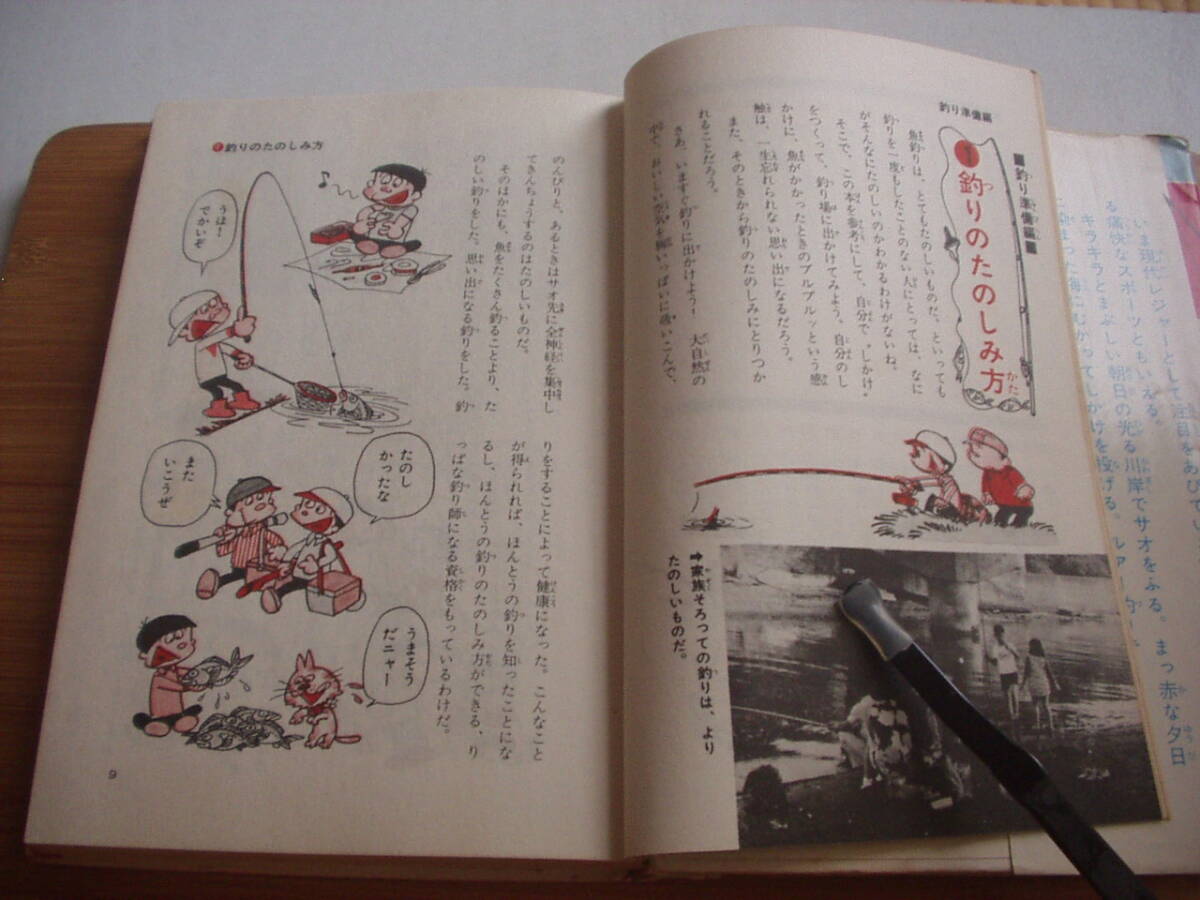 釣り準備編
■釣り準備編■
❶釣りのたのしみ方
魚釣りは、とてもたのしいものだ。といっても
釣りを一度もしたことのない人にとっては、なに
がそんなにたのしいのかわかるわけがないね。
そこで、この本を参考にして、自分で〝しかけ〟
をつくって、釣り場に出かけてみよう。自分のし
かけに、魚がかかったときのブルブルッという感
触は、一生忘れられない思い出になるだろう。
また、そのときから釣りのたのしみにとりつか
れることだろう。
さあ、いますぐ釣りに出かけよう! 大自然の
中で、おいしい空気を胸いっぱいに吸いこんで、
➡家族そろっての釣りは、より
たのしいものだ。
❶釣りのたのしみ方
のんびりと、あるときはサオ先に全神経を集中し
てきんちょうするのはたのしいものだ。
そのほかにも、魚をたくさん釣ることより、た
のしい釣りをした。思い出になる釣りをした。釣
りをすることによって健康になった。こんなこと
が得られれば、ほんとうの釣りを知ったことにな
るし、ほんとうの釣りのたのしみ方ができる、り
っぱな釣り師になる資格をもっているわけだ。
うは!
でかいぞ
たのし
かったな
また
いこうぜ
うまそう
だニャー
9
いま現代レジャーとして注目をあび
る痛快なスポーツともいえる。
キラキラとまぶしい朝日の光る川岸でサオをふる。まっ赤な夕日
に染まった海にむかってしかけを投げる。